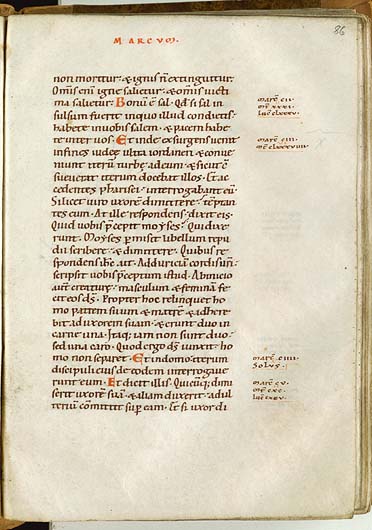 86
MARCUM
non moritur · & ignis n̄ extinguitur.
Om̄is eni igne salietur · & om̄is uicti
ma salietur. Bonū ē sal · Qd́ si sal in
sulsum fuerit inquo illud condietis·
habete inuobis salem · & pacem habe
te inter uos. Et inde exsurgens uenit
infines iudeę ultra iordanen · & conue
niunt iterū turbę adeum · & sicut c̄
sueuerat iterum docebat illos. Et ac
cedentes pharisei · interrogabant eū·
Si licet uiro uxorē dimittere · temptan
tes eum. At ille respondens · dixit eis·
Quid uobis p̄cepit moyses? Qui dixe
runt. Moyses permisit libellum repu
dii scribere · & dimittere. Quibus re
spondens ih̄c · ait. Ad duriciā cordis uri̅·
scripsit uobis p̄ceptum istud. Ab inicio
aut̄ creaturę · masculum & feminā fe
cit eos ds̄. Propter hoc relinquet ho
mo patrem suum & matrē · & adhere
bit ad uxorem suam · & erunt duo in
carne una. Itaq; iam non sunt duo·
sed una caro. Quod ergo ds̄ iunxit · ho
mo non separet. Et in domo · iterum
discipuli eius de eodem interrogaue
runt eum. Et dicit illis. Quicūq; dimi
serit uxorē suā · & aliam duxerit · adul
terium cōmittit sup̄ eam. Et si uxor di
marc̄ cii·
mt̄ xxxi·
luc̄ clxxxv·
marc̄ ciii·
mt̄ clxxxviiii·
marc̄ ciiii·
Solus·
marc̄ cv·
mt̄ cxc·
luc̄ cxcv·